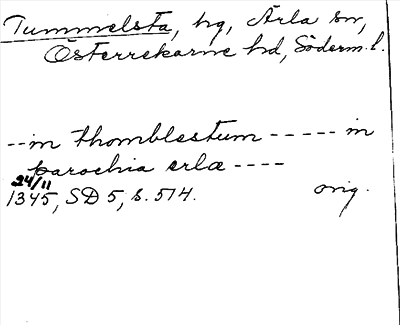 Tummelsta, hg, Ärla sn,
Österrekarne hd, Söderm. l.
--in thomblestum ----- in
parochia erlæ ----
24/11
1345, SD 5, s. 514. orig.